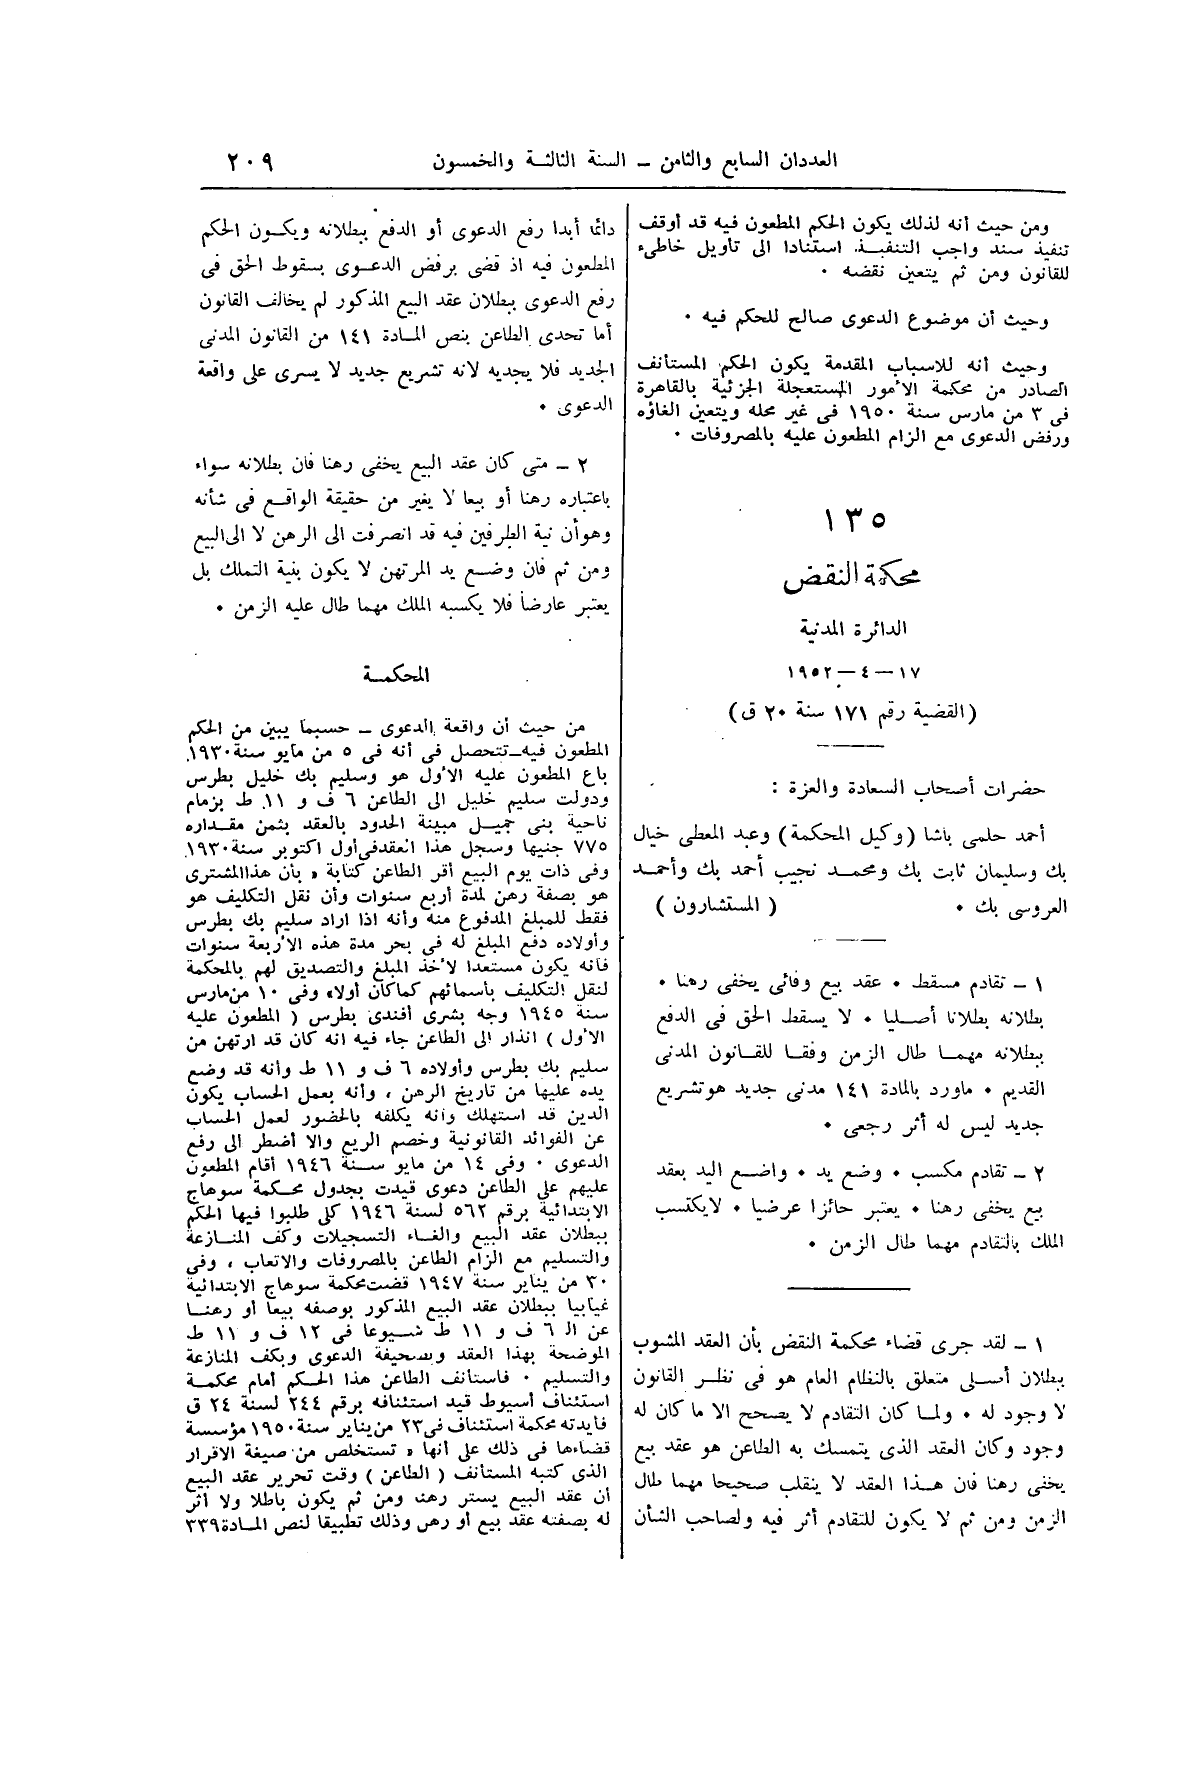 العددان السابع والثامن – السنة الثالثة والخمسون
٢٠٩
ومن حيث أنه لذلك يكون الحكم المطعون فيه قد أوقف
تنفيذ سند واجب التنفيذ استنادا الى تأويل خاطىء
للقانون ومن ثم يتعين نقضه ٠
وحيث أن موضوع الدعوى صالح للحكم فيه ٠
وحيث أنه للاسباب المقدمة يكون الحكم المستأنف
الصادر من محكمة الأمور المستعجلة الجزئية بالقاهرة
فى ٣ من مارس سنة ١٩٥٠ فى غير محله ويتعين الغاؤه
ورفض الدعوى مع الزام المطعون عليه بالمصروفات ٠
١٣٥
محكمة النقض
الدائرة المدنية
١٧ – ٤ – ١٩٥٢
(القضية رقم ١٧١ سنة ٢٠ ق)
حضرات أصحاب السعادة والعزة :
أحمد حلمى باشا (وكيل المحكمة) وعبد المعطى خيال
بك وسليمان ثابت بك ومحمد نجيب أحمد بك وأحمد
العروسى بك ٠ ( المستشارون )
١ – تقادم مسقط ٠ عقد بيع وفائى يخفى رهنا ٠
بطلانه بطلانا أصليا ٠ لا يسقط الحق فى الدفع
ببطلانه مهما طال الزمن وفقا للقانون المدنى
القديم ٠ ماورد بالمادة ١٤١ مدنى جديد هو تشريع
جديد ليس له أثر رجعى ٠
٢ – تقادم مكسب ٠ وضع يد ٠ واضع اليد بعقد
بيع يخفى رهنا ٠ يعتبر حائزا عرضيا ٠ لايكتسب
الملك بالتقادم مهما طال الزمن ٠
١ – لقد جرى قضاء محكمة النقض بأن العقد المشوب
ببطلان أصلى متعلق بالنظام العام هو فى نظر القانون
لا وجود له ٠ ولما كان التقادم لا يصحح الا ما كان له
وجود وكان العقد الذى يتمسك به الطاعن هو عقد بيع
يخفى رهنا فان هذا العقد لا ينقلب صحيحا مهما طال
الزمن ومن ثم لا يكون للتقادم أثر فيه ولصاحب الشأن
دائما أبدا رفع الدعوى أو الدفع ببطلانه ويكون الحكم
المطعون فيه اذ قضى برفض الدعوى بسقوط الحق فى
رفع الدعوى ببطلان عقد البيع المذكور لم يخالف القانون
أما تحدى الطاعن بنص المادة ١٤١ من القانون المدنى
الجديد فلا يجديه لانه تشريع جديد لا يسرى على واقعة
الدعوى ٠
٢ – متى كان عقد البيع يخفى رهنا فان بطلانه سواء
باعتباره رهنا أو بيعا لا يغير من حقيقة الواقع فى شأنه
وهو أن نية الطرفين فيه قد انصرفت الى الرهن لا الى البيع
ومن ثم فان وضع يد المرتهن لا يكون بنية التملك بل
يعتبر عارضا فلا يكسبه الملك مهما طال عليه الزمن ٠
المحكمة
من حيث أن واقعة الدعوى – حسبما يبين من الحكم
المطعون فيه – تتحصل فى أنه فى ٥ من مايو سنة ١٩٣٠
باع المطعون عليه الأول هو وسليم بك خليل بطرس
ودولت سليم خليل الى الطاعن ٦ ف و ١١ ط بزمام
ناحية بنى جميل مبينة الحدود بالعقد بثمن مقداره
٧٧٥ جنيها وسجل هذا العقد فى أول اكتوبر سنة ١٩٣٠
وفى ذات يوم البيع أقر الطاعن كتابة « بأن هذا المشترى
هو بصفة رهن لمدة أربع سنوات وأن نقل التكليف هو
فقط للمبلغ المدفوع منه وأنه اذا اراد سليم بك بطرس
وأولاده دفع المبلغ له فى بحر مدة هذه الأربعة سنوات
فانه يكون مستعدا لأخذ المبلغ والتصديق لهم بالمحكمة
لنقل التكليف بأسمائهم كما كان أولا» وفى ١٠ من مارس
سنة ١٩٤٥ وجه بشرى أفندى بطرس ( المطعون عليه
الأول ) انذار الى الطاعن جاء فيه انه كان قد ارتهن من
سليم بك بطرس وأولاده ٦ ف و ١١ ط وأنه قد وضع
يده عليها من تاريخ الرهن ، وأنه بعمل الحساب يكون
الدين قد استهلك وانه يكلفه بالحضور لعمل الحساب
عن الفوائد القانونية وخصم الريع والا أضطر الى رفع
الدعوى ٠ وفى ١٤ من مايو سنة ١٩٤٦ أقام المطعون
عليهم على الطاعن دعوى قيدت بجدول محكمة سوهاج
الابتدائية برقم ٥٦٢ لسنة ١٩٤٦ كلى طلبوا فيها الحكم
ببطلان عقد البيع والغاء التسجيلات وكف المنازعة
والتسليم مع الزام الطاعن بالمصروفات والاتعاب ، وفى
٣٠ من يناير سنة ١٩٤٧ قضت محكمة سوهاج الابتدائية
غيابيا ببطلان عقد البيع المذكور بوصفه بيعا أو رهنا
عن الـ ٦ ف و ١١ ط شيوعا فى ١٢ ف و ١١ ط
الموضحة بهذا العقد وصحيفة الدعوى وبكف المنازعة
والتسليم ٠ فاستأنف الطاعن هذا الحكم أمام محكمة
استئناف أسيوط قيد استئنافه برقم ٢٤٤ لسنة ٢٤ ق
فأيدته محكمة استئناف فى ٢٣ من يناير سنة ١٩٥٠ مؤسسة
قضاءها فى ذلك على أنها « تستخلص من صيغة الاقرار
الذى كتبه المستأنف ( الطاعن ) وقت تحرير عقد البيع
أن عقد البيع يستر رهنا ومن ثم يكون باطلا ولا أثر
له بصفته عقد بيع أو رهن وذلك تطبيقا لنص المادة ٣٣٩